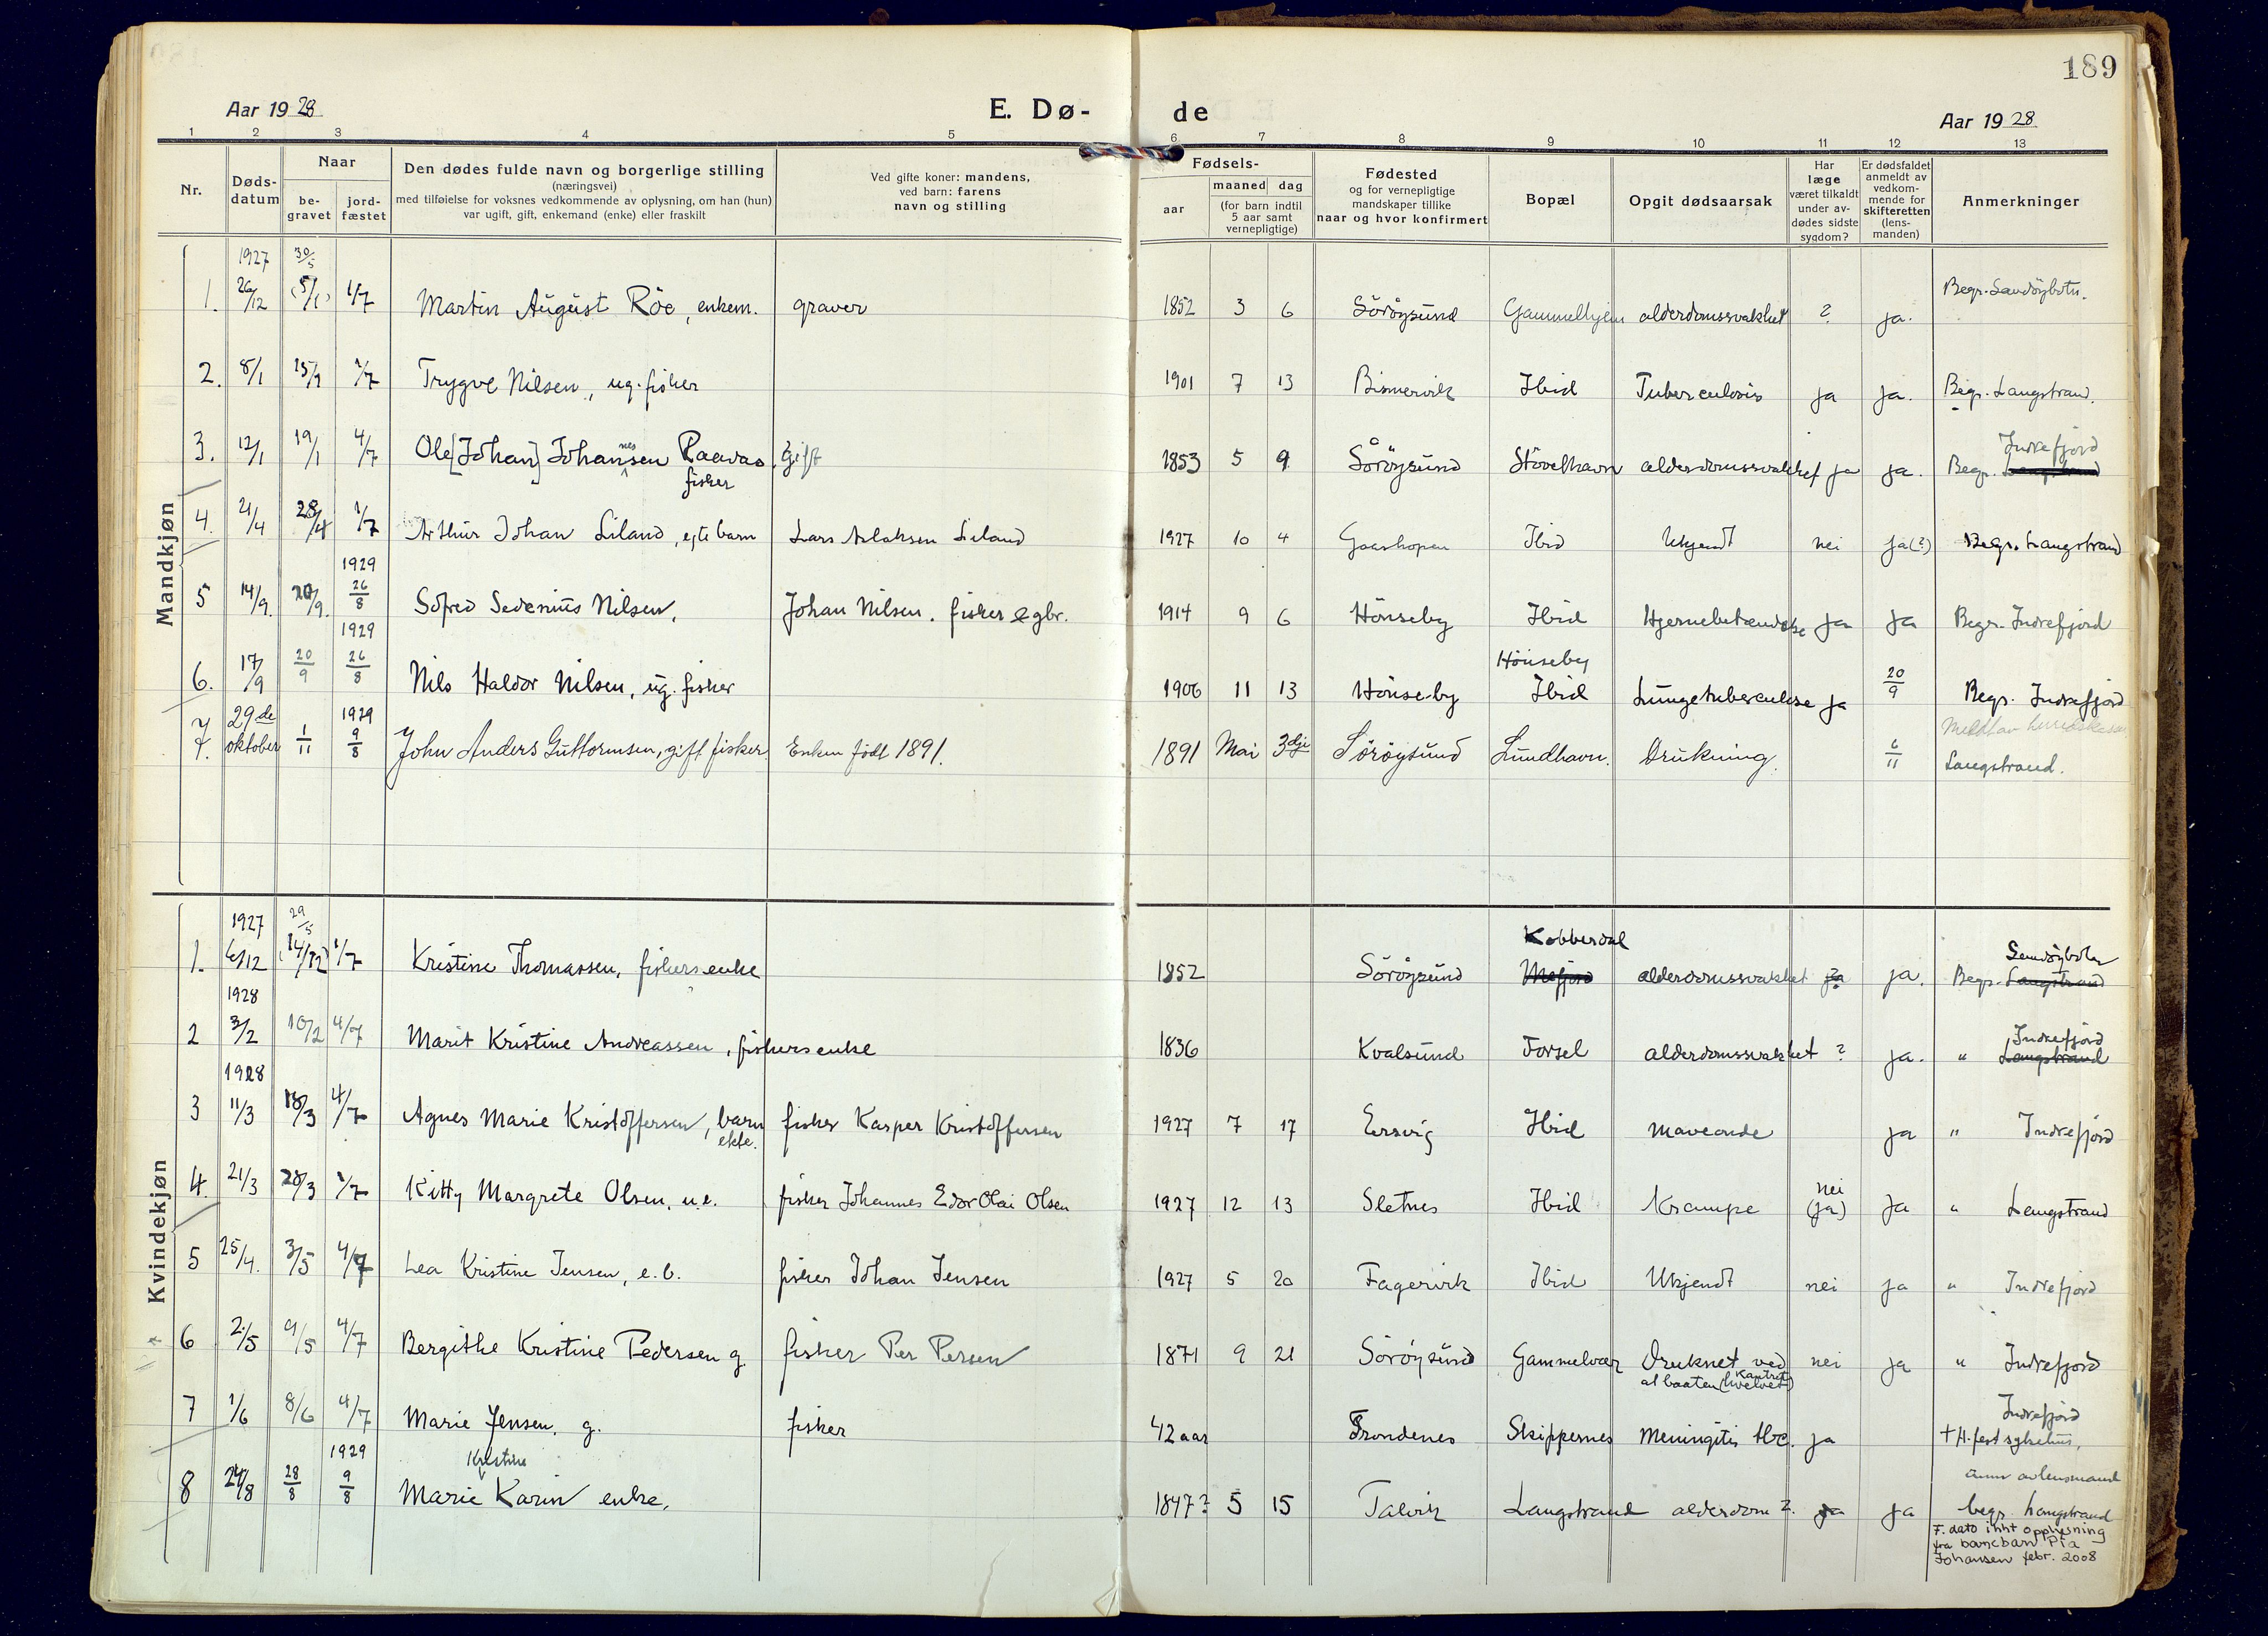 189
Aar 1928 E. Dø- de Aar 1928
1 2 3 4 5 6 7 8 9 10 11 12 13
Nr.
Døds-
datum
Naar
be-
gravet
jord-
fæstet
Den dødes fulde navn og borgerlige stilling
(næringsvei)
med tilføielse for voksnes vedkommende av oplysning, om han (hun)
var ugift, gift, enkemand (enke) eller fraskilt
Ved gifte koner: mandens,
ved barn: farens
navn og stilling
Fødsels-
aar
maaned dag
(for barn indtil
5 aar samt
vernepligtige)
Fødested
og for vernepligtige
mandskaper tillike
naar og hvor konfirmert
Bopæl
Opgit dødsaarsak
Har
læge
været tilkaldt
under av-
dødes sidste
sygdom?
Er dødsfaldet
anmeldt av
vedkom-
mende for
skifteretten
(lens-
manden)
Anmerkninger
Mandkjøn
1927 30/5
1. 26/12 (5/1) 1/7 Martin August Röe, enkem. graver 1852 3 6 Söröysund Gammelhjem alderdomssvakhet ? ja. Begr. Sandöybotn.
2. 8/1 15/1 1/7 Trygve Nilsen, ug. fisker 1901 7 13 Bismervik Ibid Tuberculosis ja ja. Begr. Langstrand.
Indrefjord
3. 12/1 19/1 4/7 Ole [Johan] Johannessen Raavas, gift 1853 5 9 Söröysund Stövelhavn alderdomssvakhet ja ja. Begr. Langstrand
fisker
4. 21/4 28/4 1/7 Arthur Johan Liland, egte barn Lars Aslaksen Liland 1927 10 4 Gaashopen Ibid Ukjendt nei ja(?) Begr. Langstrand
1929
5 14/9. 20/9. 26/8 Sofred Sedenius Nilsen, Johan Nilsen. fisker & gbr. 1914 9 6 Hönseby Ibid Hjernebetændelse ja ja Begr. Indrefjord
1929 Hönseby
6. 17/9 20/9 26/8 Nils Haldor Nilsen, ug. fisker 1906 11 13 Hönseby Ibid Lungetuberculose ja 20/9 Begr. Indrefjord
1929
7. 29de oktober 1/11 9/8 John Anders Guttormsen, gift fisker. Enken født 1891. 1891 Mai 3dje Sørøysund Lundhavn. Drukning. 6/11 Langstrand.
Kvindekjøn
1927 29/5 Kobberdal Sandöybotn
1. 6/12 (14/12) 1/7 Kristine Thomassen, fiskers enke 1852 Söröysund Mefjord alderdomssvakhet ja ja. Begr. Langstrand
1928 Indrefjord
2 3/2 10/2 4/7 Marit Kristine Andreassen, fiskers enke 1836 Kvalsund Forsøl alderdomssvakhet ? ja. " Langstrand
1928
3 11/3 18/3 4/7 Agnes Marie Kristoffersen, barn fisker Kasper Kristoffersen 1927 7 17 Ersvig Ibid maveonde ja " Indrefjord
ekte.
nei
4. 21/3 28/3 1/7 Kitty Margrete Olsen, u.e. fisker Johannes Edor Olai Olsen 1927 12 13 Sletnes Ibid Krampe (ja) ja " Langstrand
5 25/4. 3/5 4/7 Lea Kristine Jensen, e.b. fisker Johan Jensen 1927 5 20 Fagervik Ibid Ukjendt nei ja " Indrefjord
6 2/5 9/5 4/7 Bergithe Kristine Pedersen g. fisker Per Persen 1871 9 21 Söröysund Gammelvær Druknet ved nei ja " Indrefjord
kantret
at baaten (hvelvet)
Indrefjord
7 1/6 8/6 4/7 Marie Jensen, g. fisker 42 aar Trondenes Skippernes Meningitis tbc. ja † H.fest sykehus,
1929
Kristine
8 24/8 28/8 9/8 Marie Karin enke, 1847? 5 15 Talvik Langstrand alderdom ?. ja ja begr. Langstrand
F. dato ihht opplysning
fra barnebarn Pia
Johansen febr. 2008